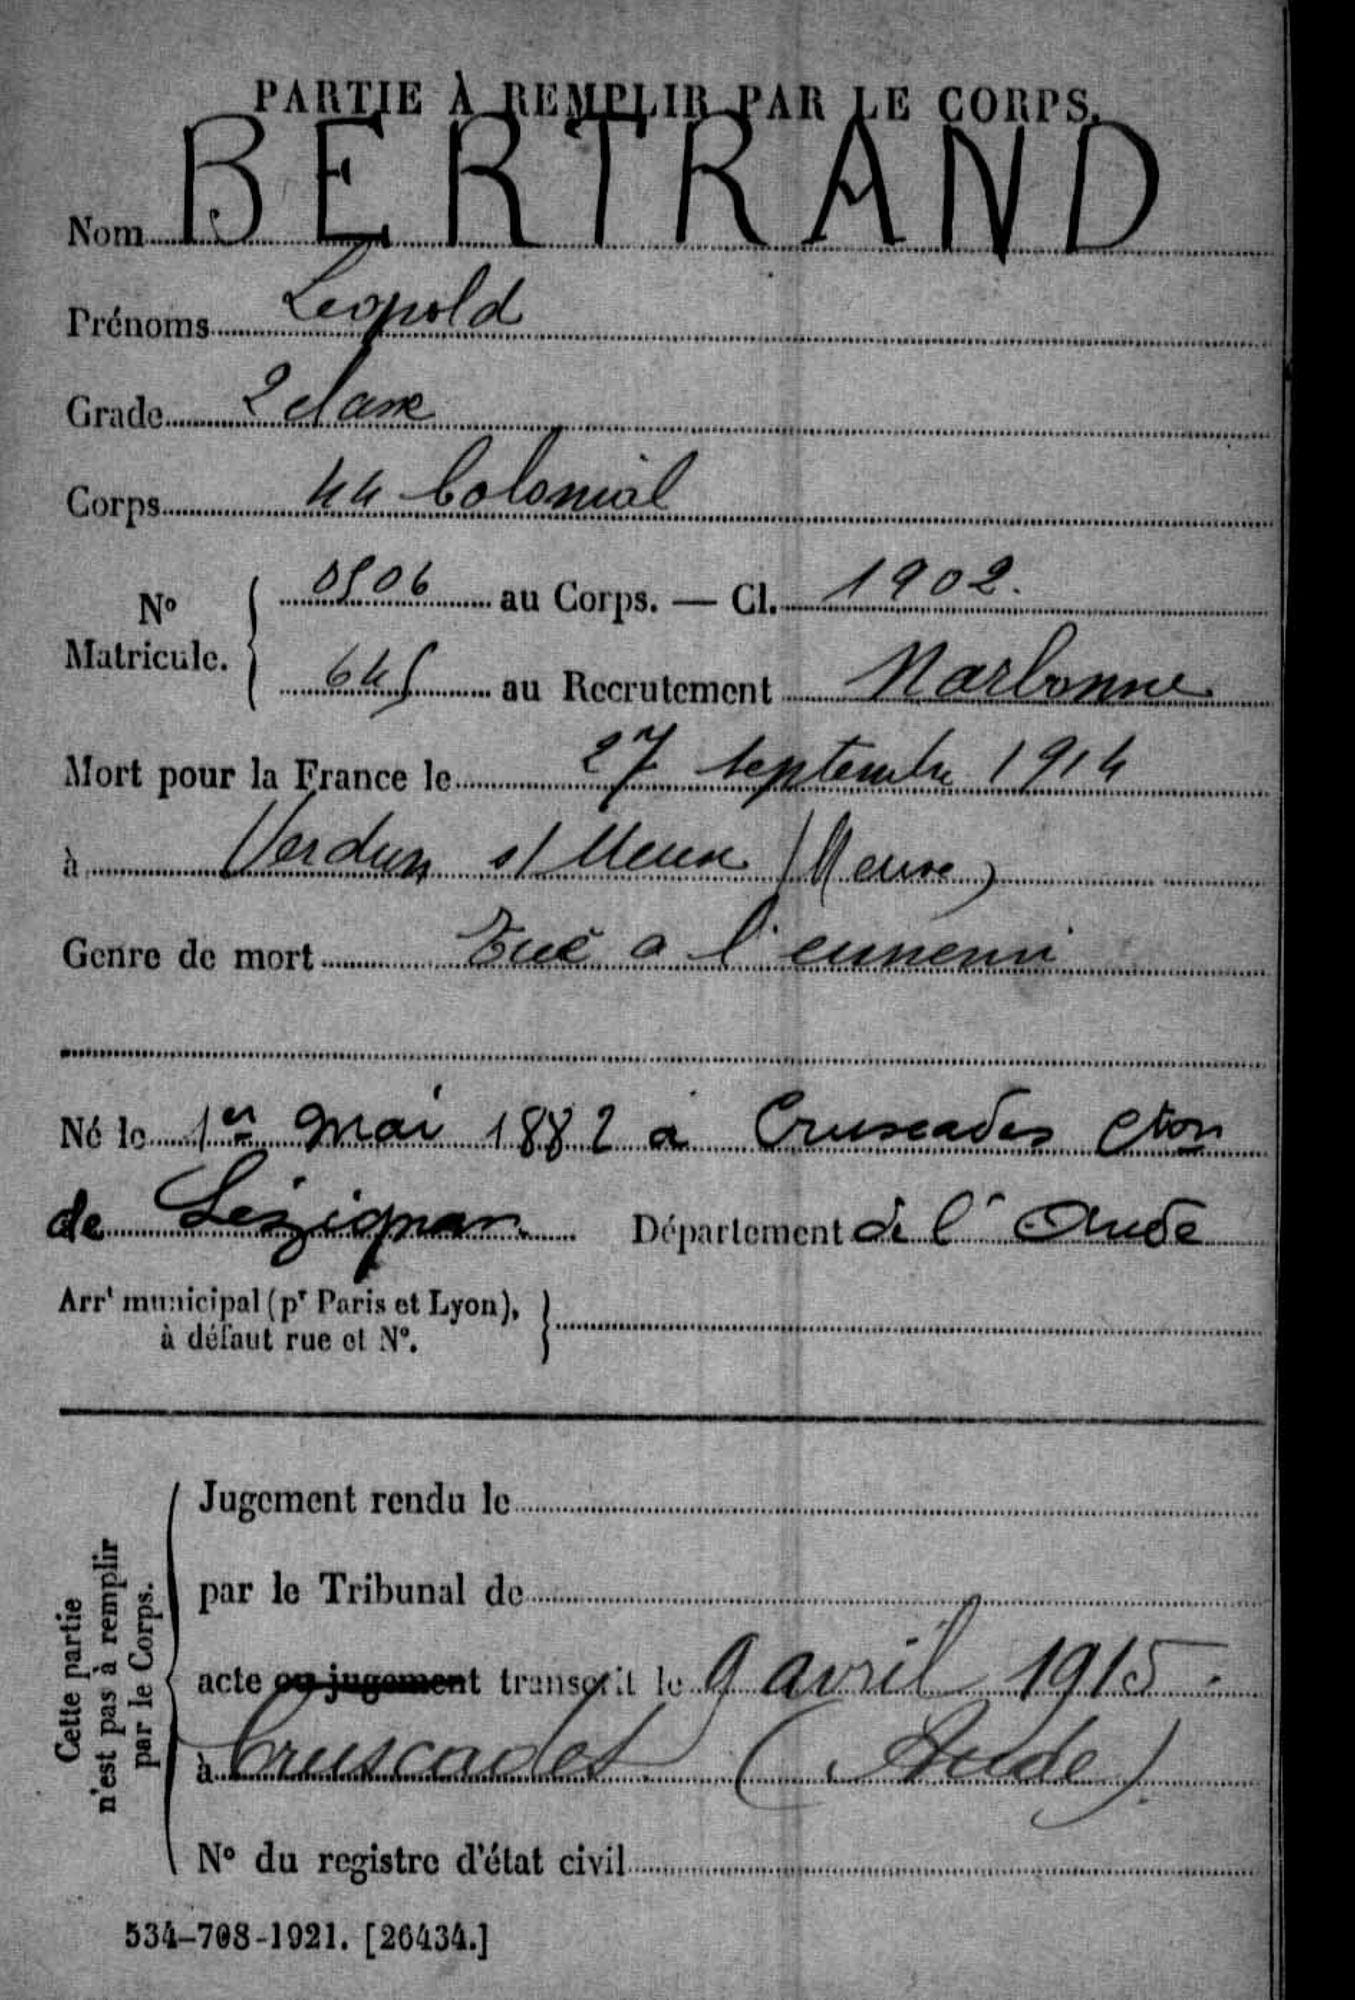 PARTIE À REMPLIR PAR LE CORPS.
Nom BERTRAND
Prénoms Leopold
Grade 2 classe
Corps 44 Colonial
N° Matricule. { 0506 au Corps. — Cl. 1902.
645 au Recrutement Narbonne
Mort pour la France le 27 septembre 1914
à Verdun s/ Meuse (Meuse)
Genre de mort Tué a l'ennemi
Né le 1er Mai 1882 à Cruscades Cton
de Lézignan Département de l'Aude
Arrt municipal (pr Paris et Lyon),
à défaut rue et N°. }
Cette partie
n'est pas à remplir
par le Corps.
Jugement rendu le
par le Tribunal de
acte ou jugement transcrit le 9 avril 1915.
à Cruscades (Aude).
N° du registre d'état civil
534-708-1921. [26434.]